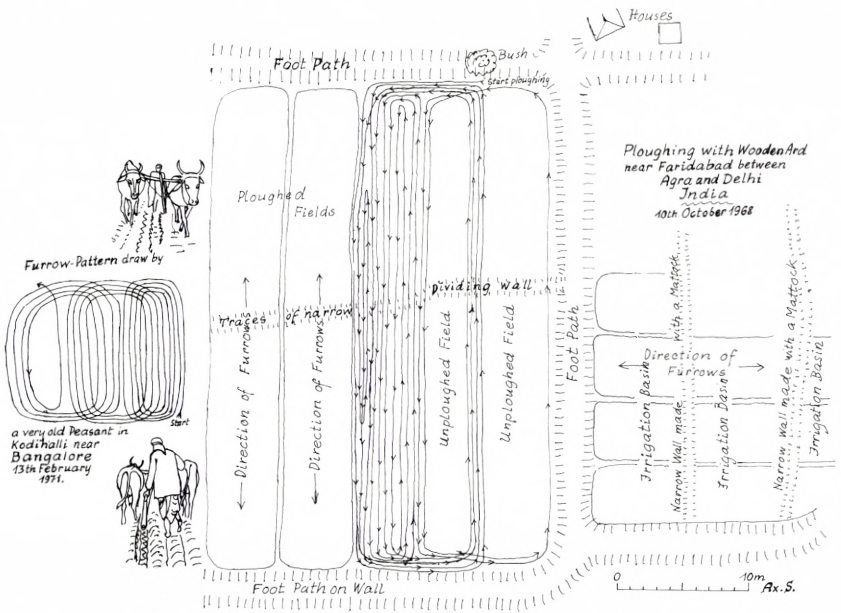 Houses
Bush
Foot Path
Start ploughing
Ploughing with Wooden Ard
near Faridabad between
Agra and Delhi
India
10th October 1968
Ploughed
Fields
Furrow-Pattern draw by
Start
a very old Peasant in
Kodihalli near
Bangalore
13th February
1971.
Traces of narrow Dividing Wall
Direction of Furrows
Direction of Furrows
Unploughed Field
Unploughed Field
Foot Path
Direction of
Furrows
Irrigation Basin
Narrow Wall made with a Mattock
Irrigation Basin
Narrow Wall made with a Mattock
Irrigation Basin
Foot Path on Wall
0 10m
Ax.S.